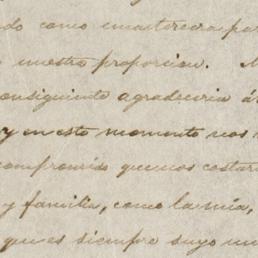 como enasterera pa
nuestra proporcion.
onsiguiente agradeceria á
y en este momento nos
compromiso que nos costar
y familia, como la mia,
que es siempre suyo